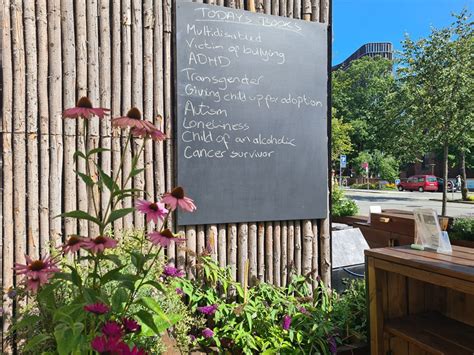 TODAY'S BOOKS
Multidisabled
Victim of bullying
ADHD
Transgender
Giving child up for adoption
Autism
Loneliness
Child of an alcoholic
Cancer survivor